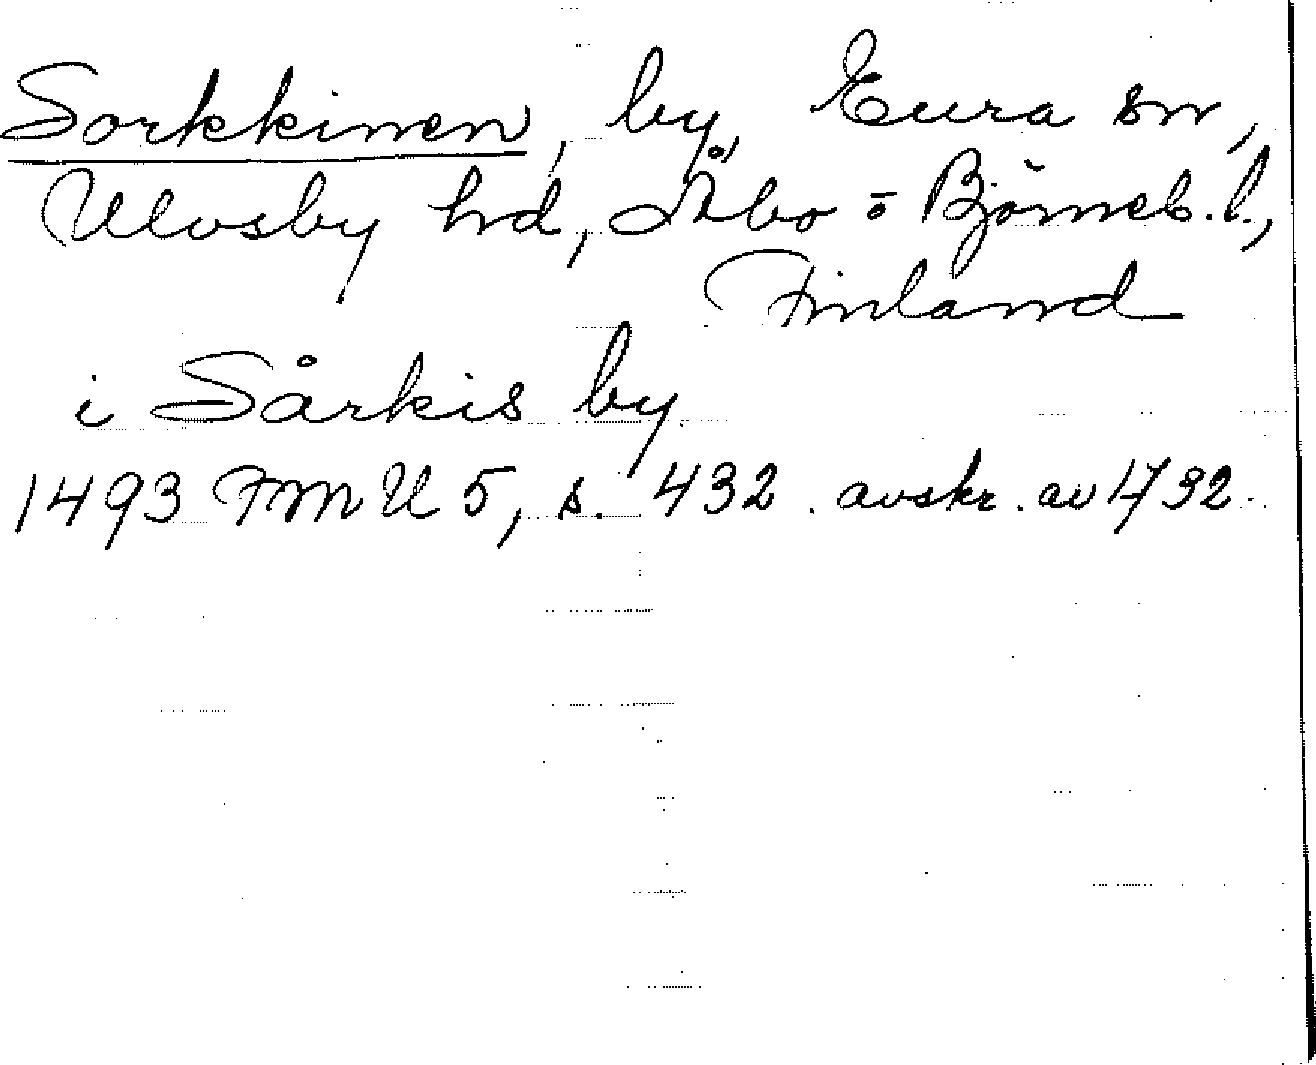 Sorkkinen, by, Eura sn,
Ulvsby hd, Åbo o Björneb. l.,
Finland
i Sårkis by
1493 FMU 5, s. 432. avskr. av 1792.